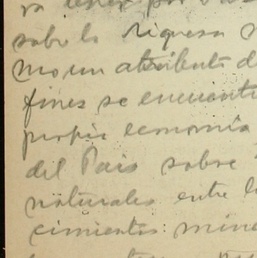 sobre la riquesa
mo un atributo d
fines se encuent
propia economia
del Pais sobre
naturales entre l
cimientos mine